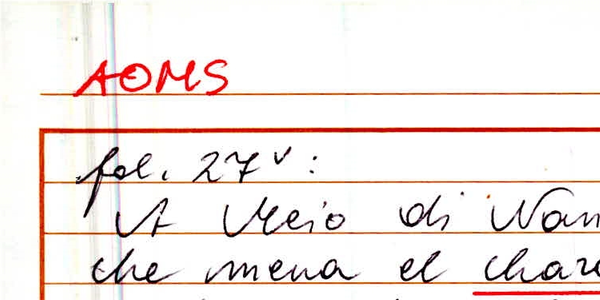 AOMS
fol. 27v:
A Meio di Nan
che mena el char